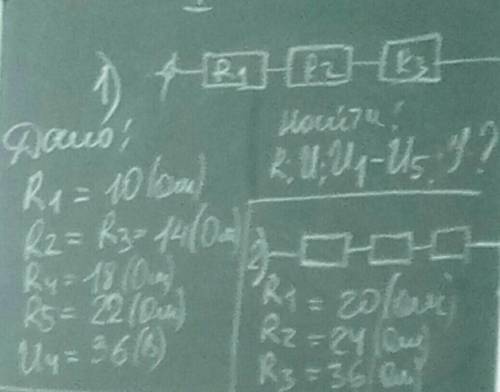 1)
R1 R2 R3
Дано:
R1 = 10(Ом)
R2 = R3 = 14(Ом)
R4 = 18(Ом)
R5 = 22(Ом)
U4 = 36(В)
Найти:
R; U; U1-U5; У?
2)
R1 = 20(Ом)
R2 = 24(Ом)
R3 = 36(Ом)